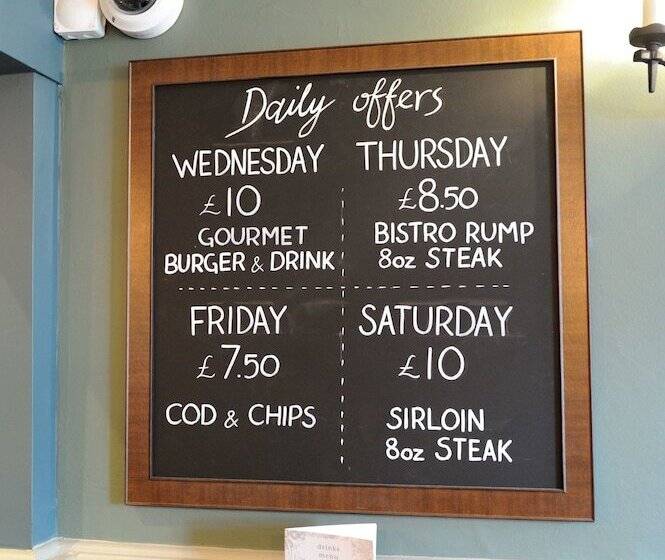 Daily offers
WEDNESDAY
£10
GOURMET
BURGER & DRINK
THURSDAY
£8.50
BISTRO RUMP
8oz STEAK
FRIDAY
£7.50
COD & CHIPS
SATURDAY
£10
SIRLOIN
8oz STEAK
drinks
menu